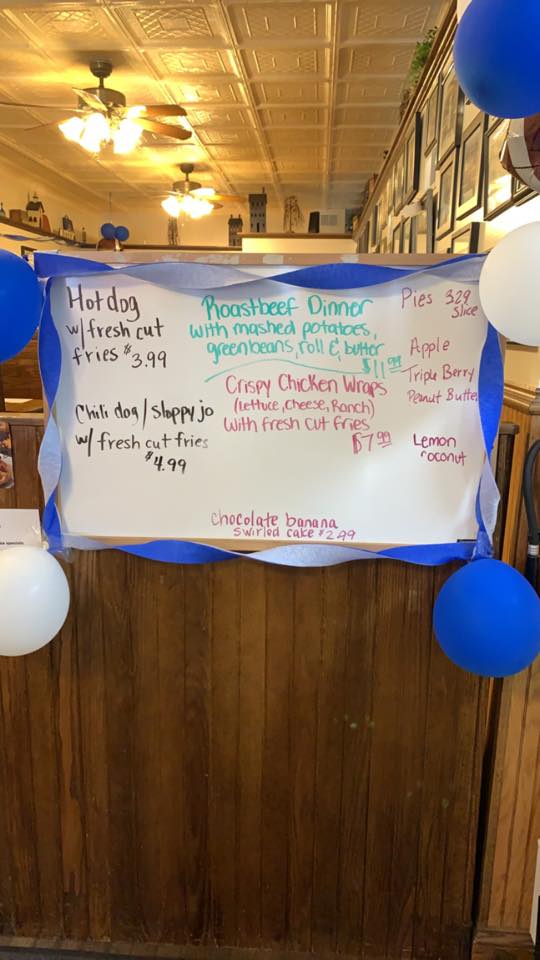 Hotdog
w/fresh cut
fries $3.99
Chili dog/Sloppy jo
w/ fresh cut fries
$4.99
Roastbeef Dinner
with mashed potatoes,
greenbeans, roll & butter
$11.99
Crispy Chicken Wraps
(Lettuce, Cheese, Ranch)
With fresh cut fries
$7.99
chocolate banana
swirled cake $2.99
Pies 3.29
Slice
Apple
Triple Berry
Peanut Butter
Lemon
coconut